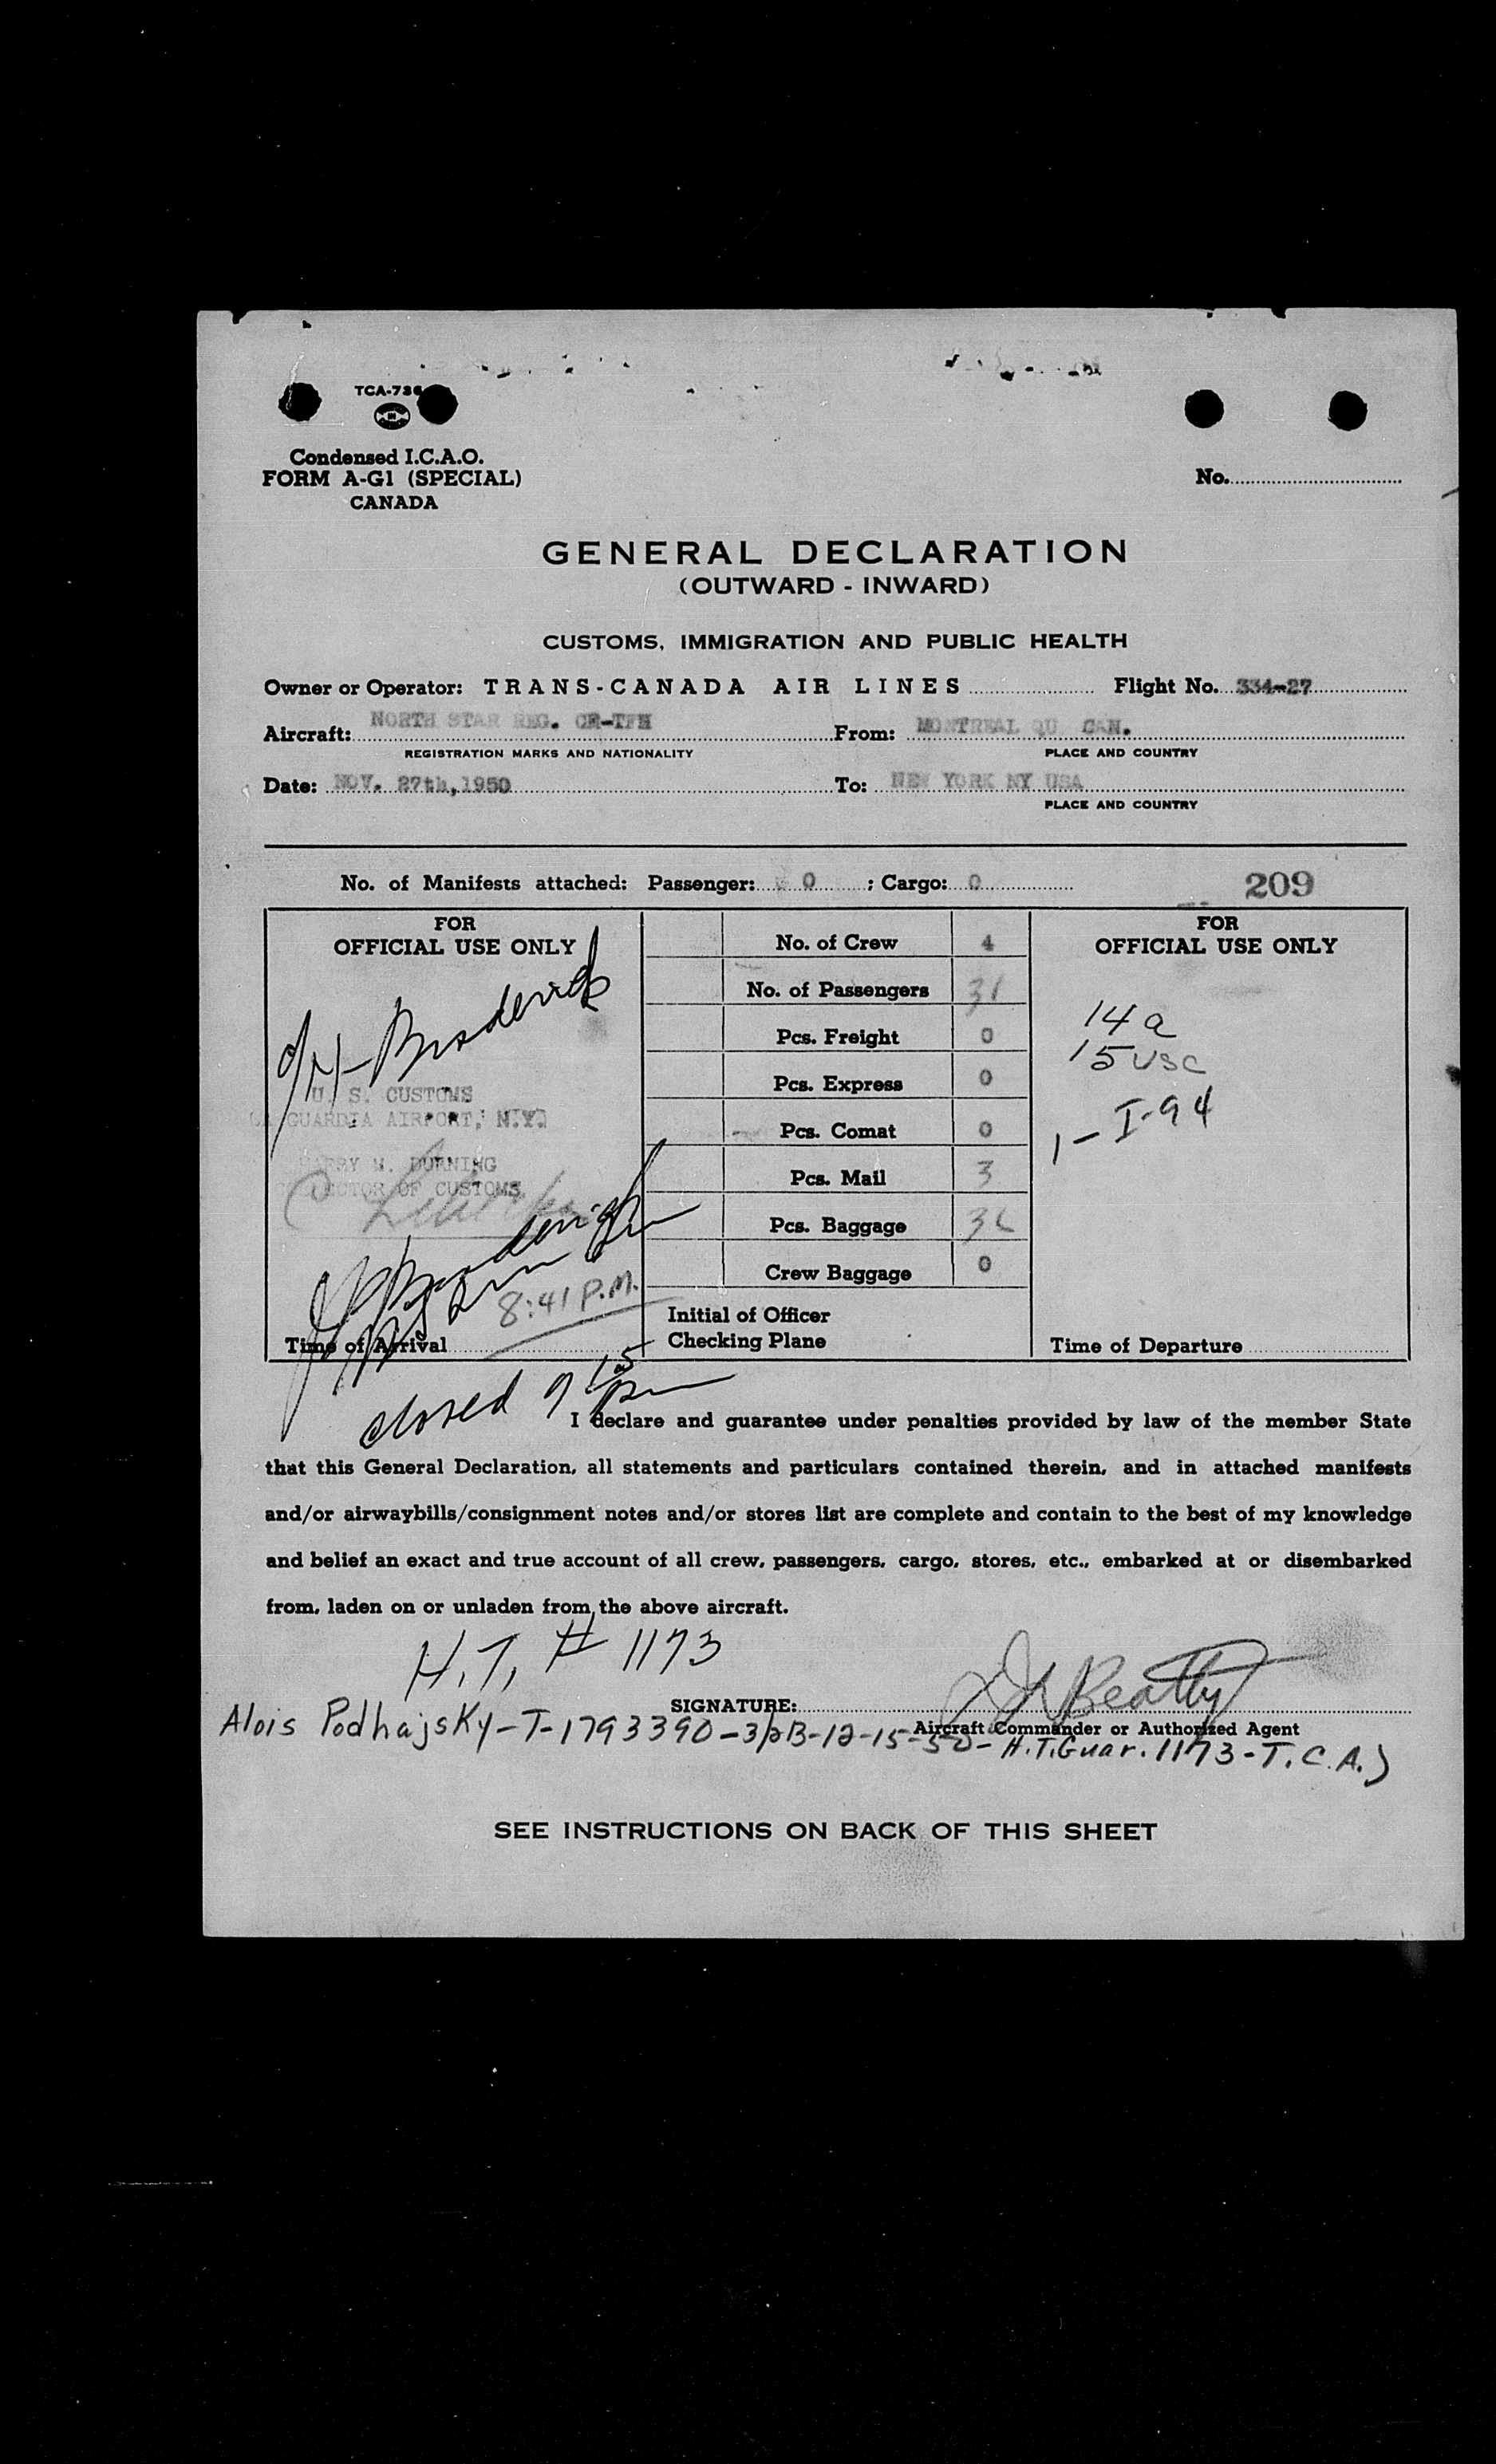 TCA-736
Condensed I.C.A.O.
FORM A-G1 (SPECIAL)
CANADA
No.
GENERAL DECLARATION
(OUTWARD - INWARD)
CUSTOMS, IMMIGRATION AND PUBLIC HEALTH
Owner or Operator: TRANS-CANADA AIR LINES Flight No. 334-27
Aircraft: NORTH STAR REG. CF-TFH From: MONTREAL QU CAN.
REGISTRATION MARKS AND NATIONALITY PLACE AND COUNTRY
Date: NOV. 27th,1950 To: NEW YORK NY USA
PLACE AND COUNTRY
No. of Manifests attached: Passenger: 0 ; Cargo: 0 209
FOR
OFFICIAL USE ONLY
Broderick
U. S. CUSTOMS
LA GUARDIA AIRPORT, N.Y.
HARRY M. DURNING
COLLECTOR OF CUSTOMS
Broderick
8:41 P.M.
Time of Arrival
No. of Crew 4
No. of Passengers 31
Pcs. Freight 0
Pcs. Express 0
Pcs. Comat 0
Pcs. Mail 3
Pcs. Baggage
Crew Baggage 0
Initial of Officer
Checking Plane
FOR
OFFICIAL USE ONLY
14 a
15 USC
1 - I-94
Time of Departure
closed 9 15 pm
I declare and guarantee under penalties provided by law of the member State
that this General Declaration, all statements and particulars contained therein, and in attached manifests
and/or airwaybills/consignment notes and/or stores list are complete and contain to the best of my knowledge
and belief an exact and true account of all crew, passengers, cargo, stores, etc., embarked at or disembarked
from, laden on or unladen from the above aircraft.
H.T. # 1173
SIGNATURE: Beatty
Aircraft Commander or Authorized Agent
Alois Podhajsky-T-1793390-3/2B-12-15-50-H.T.Guar.1173-T.C.A.)
SEE INSTRUCTIONS ON BACK OF THIS SHEET